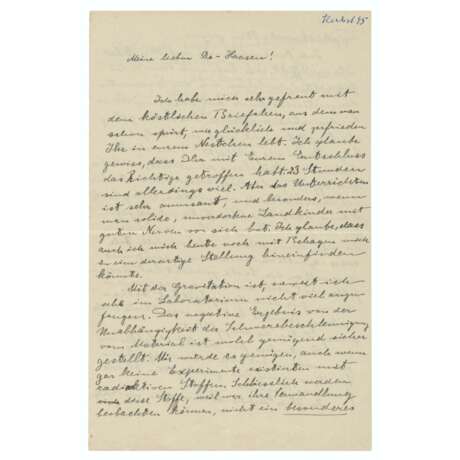 Herbst 45
Meine lieben Do-Haasen!
Ich habe mich sehr gefreut mit
dem köstlichen Briefchen, aus dem man
schon spürt, wie glücklich und zufrieden
Ihr in eurem Nestchen lebt. Ich glaube
gewiss, dass Ihr mit Eurem Entschluss
das Richtige getroffen habt. 23 Stunden
sind allerdings viel. Aber das Unterrichten
ist sehr amusant, und besonders, wenn
man solide, unverdorbene Landkinder mit
guten Nerven vor sich hat. Ich glaube, dass
auch ich mich heute noch mit Behagen
in eine derartige Stellung hineinfinden
könnte.
Mit der Gravitation ist, soweit ich
sehe im Laboratorium nicht viel anzu-
fangen. Das negative Ergebnis von der
Unabhängigkeit der Schwerebeschleunigung
vom Material ist wohl genügend sicher
gestellt. Mir würde es genügen, auch wenn
gar keine Experimente existierten mit
radioaktiven Stoffen. Schliesslich werden
diese Stoffe, weil wir ihre Verwandlung
beobachten können, nicht ein besonderes